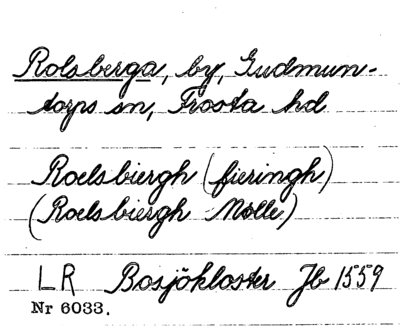 Rolsberga, by, Gudmun-
torps sn, Frosta hd
Roelsbiergh (fieringh)
(Roelsbiergh Mølle)
LR Bosjökloster Jb 1559
Nr 6033.